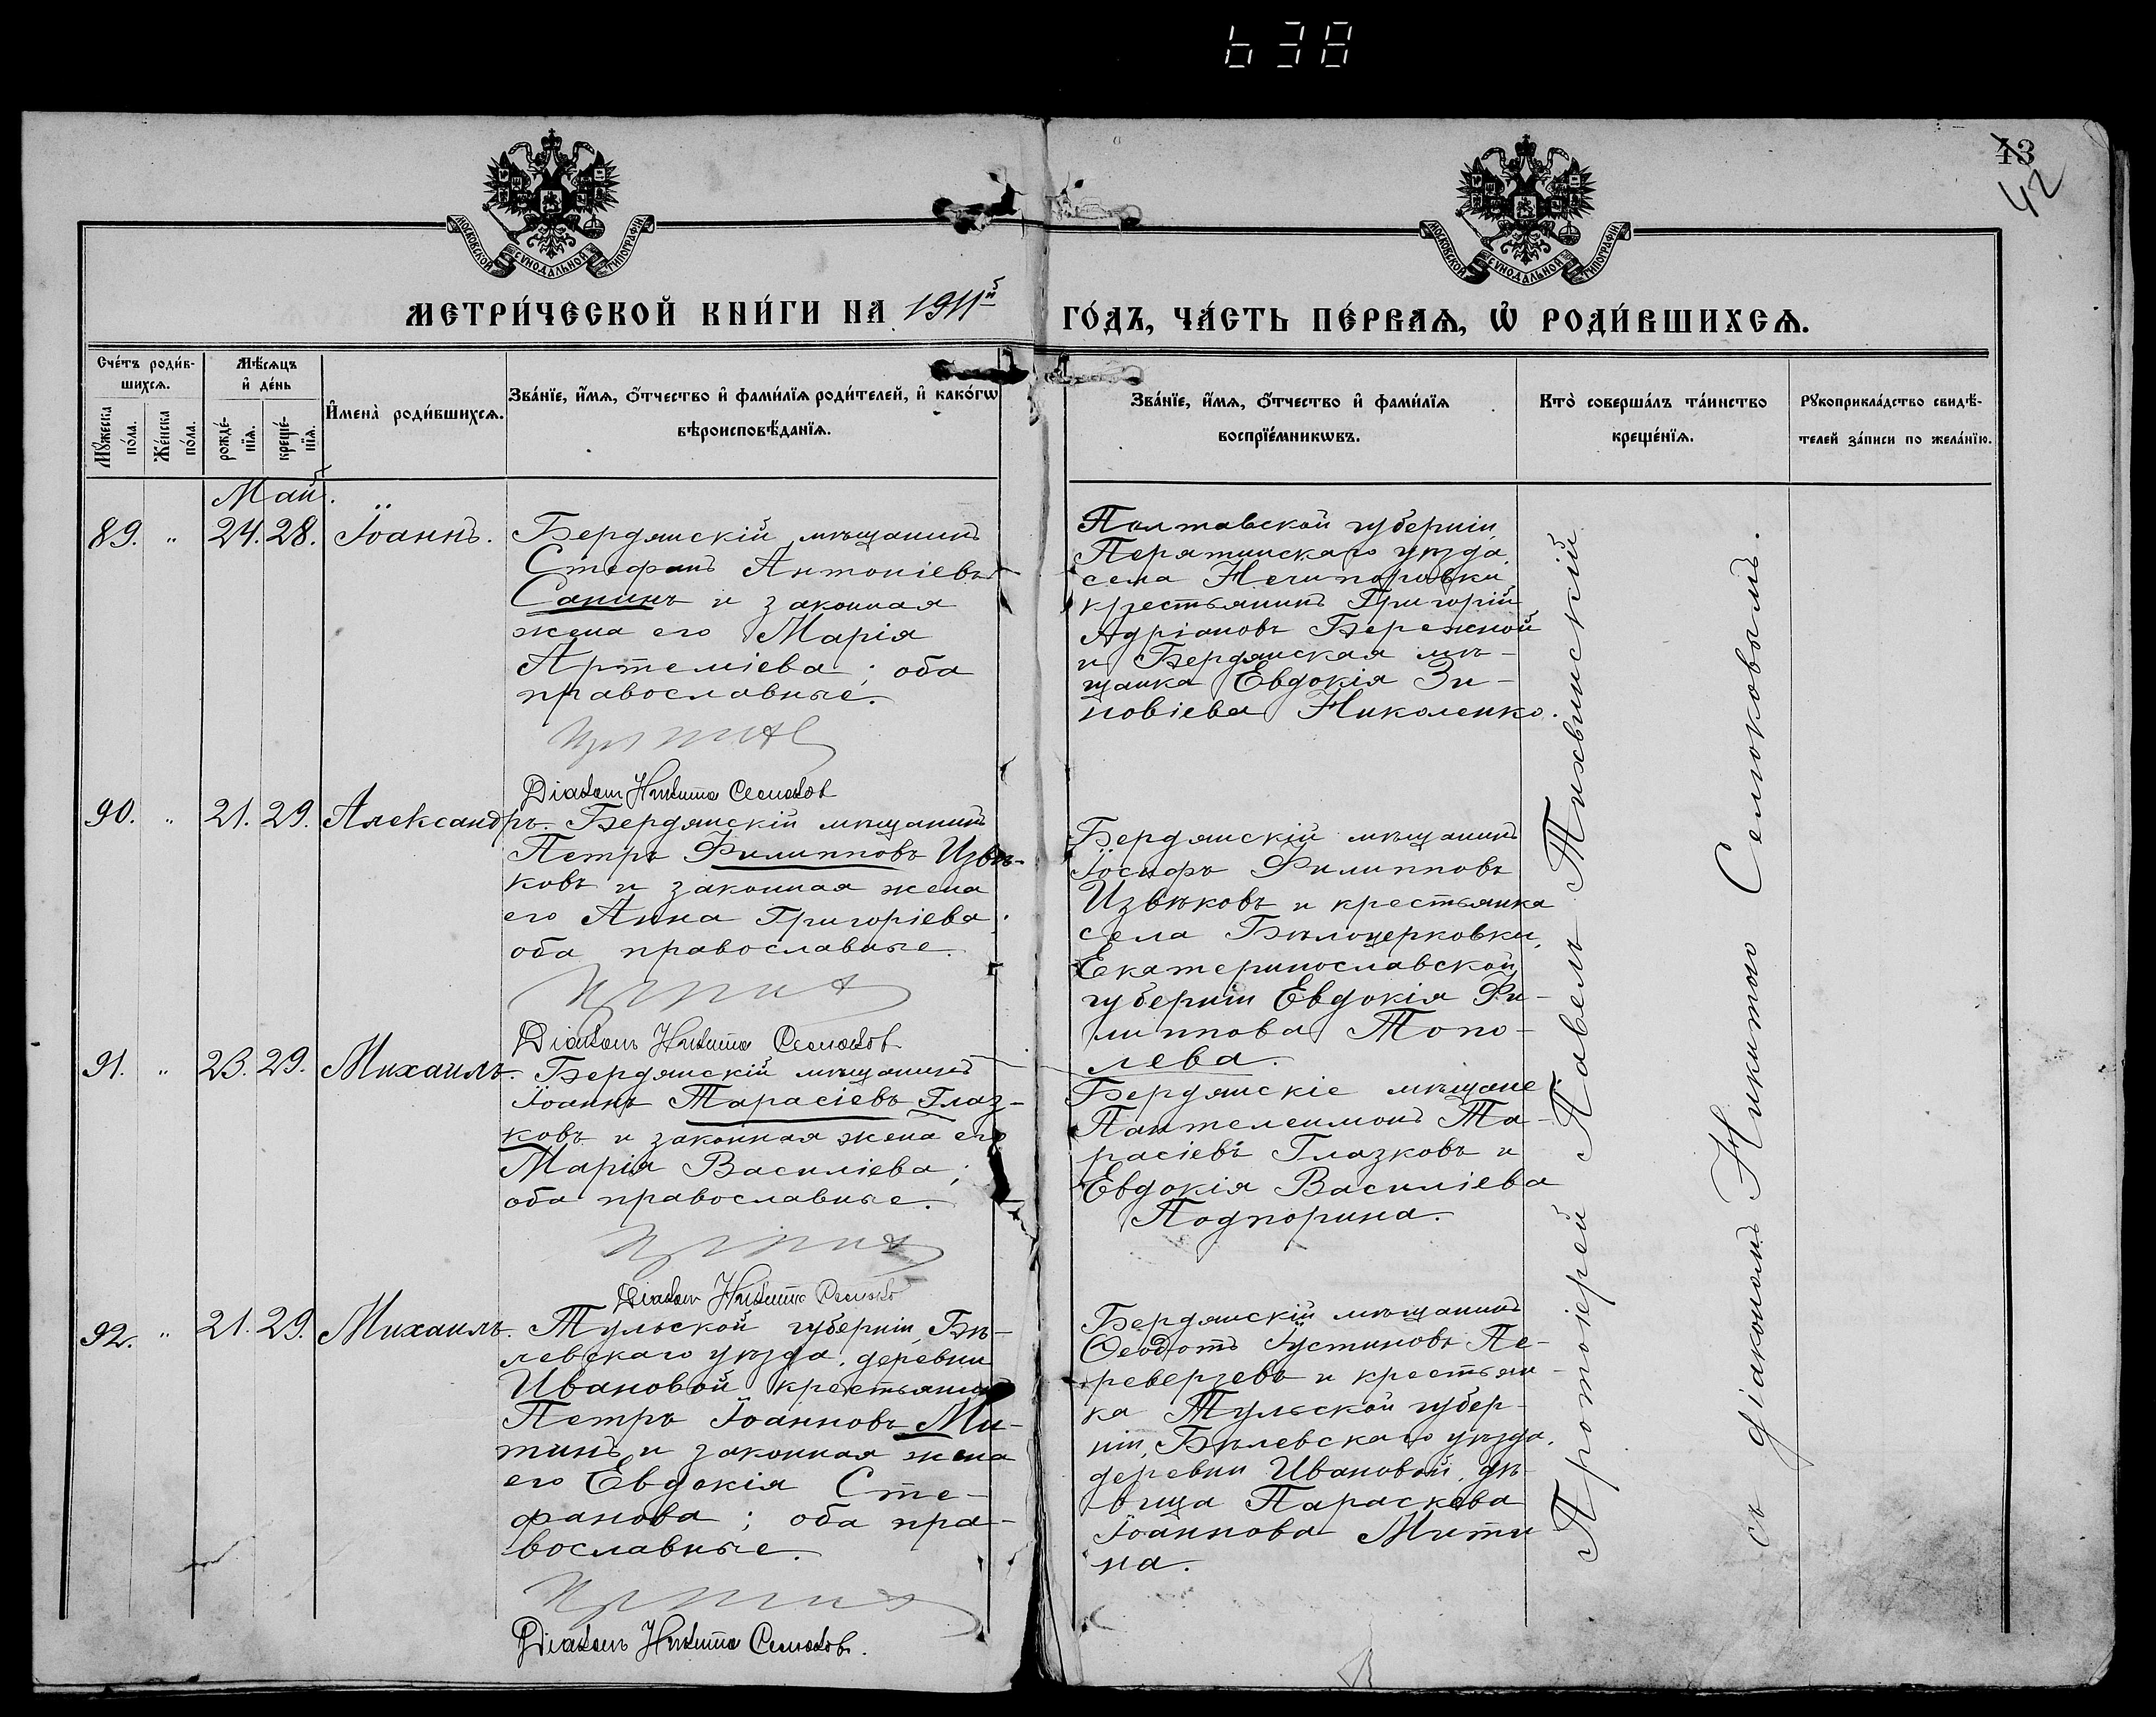 638
43
42
МОСКОВСКОЙ СУНОДАЛЬНОЙ ТИПОГРАФІИ
МОСКОВСКОЙ СУНОДАЛЬНОЙ ТИПОГРАФІИ
МЕТРИ́ЧЕСКОЙ КНИ́ГИ НА 1911й ГО́ДЪ, ЧА́СТЬ ПЕ́РВАѦ, Ѽ РОДИ́ВШИХСѦ.
Сче́тъ роди́в-
шихсѧ.
Мꙋ́жеска по́ла.
Же́нска по́ла.
Мѣ́сѧцъ
и҆ де́нь
рожде́-
нїѧ.
креще́-
нїѧ.
И҆мена̀ роди́вшихсѧ.
Зва́нїе, и҆́мѧ, ѻ҆́тчество и҆ фами́лїѧ роди́телей, и҆ како́гѡ
вѣроисповѣ́данїѧ.
Зва́нїе, и҆́мѧ, ѻ҆́тчество и҆ фами́лїѧ
воспрїе́мникѡвъ.
Кто̀ соверша́лъ та́инство
креще́нїѧ.
Рꙋкоприкла́дство свидѣ́-
телей за́писи по жела́нїю.
Май.
89. " 24. 28. Іоаннъ.
Бердянскій мѣщанинъ
Стефанъ Антоніевъ
Сапинъ и законная
жена его Марія
Артеміева; оба
православные.
Діаконъ Никита Семоковъ
Полтавской губерніи,
Пирятинскаго уѣзда,
села Нечипоровки,
крестьянинъ Григорій
Адріановъ Бережной
и Бердянская мѣ-
щанка Евдокія Зи-
новіева Николенко.
90. " 21. 29. Александръ.
Бердянскій мѣщанинъ
Петръ Филипповъ Извѣ-
ковъ и законная жена
его Анна Григоріева;
оба православные.
Діаконъ Никита Семоковъ
Бердянскій мѣщанинъ
Іосифъ Филипповъ
Извѣковъ и крестьянка
села Бѣлоцерковки,
Екатеринославской
губерніи Евдокія Фи-
липпова Топо-
лева.
91. " 23. 29. Михаилъ.
Бердянскій мѣщанинъ
Іоаннъ Тарасіевъ Глаз-
ковъ и законная жена его
Марія Василіева;
оба православные.
Діаконъ Никита Семоковъ
Бердянскіе мѣщане
Пантелеимонъ Та-
расіевъ Глазковъ и
Евдокія Василіева
Подпорина.
92. " 21. 29. Михаилъ.
Тульской губерніи, Бѣ-
левскаго уѣзда, деревни
Ивановой крестьянинъ
Петръ Іоанновъ Ми-
тинъ и законная жена
его Евдокія Сте-
фанова; оба пра-
вославные.
Діаконъ Никита Семоковъ.
Бердянскій мѣщанинъ
Ѳеодотъ Іустиновъ Пе-
реверзевъ и крестьян-
ка Тульской губер-
ніи, Бѣлевскаго уѣзда,
деревни Ивановой, дѣ-
вица Параскева
Іоаннова Мити
на.
Протоіерей Павелъ Тихвинскій
съ діакономъ Никитою Семоковымъ.